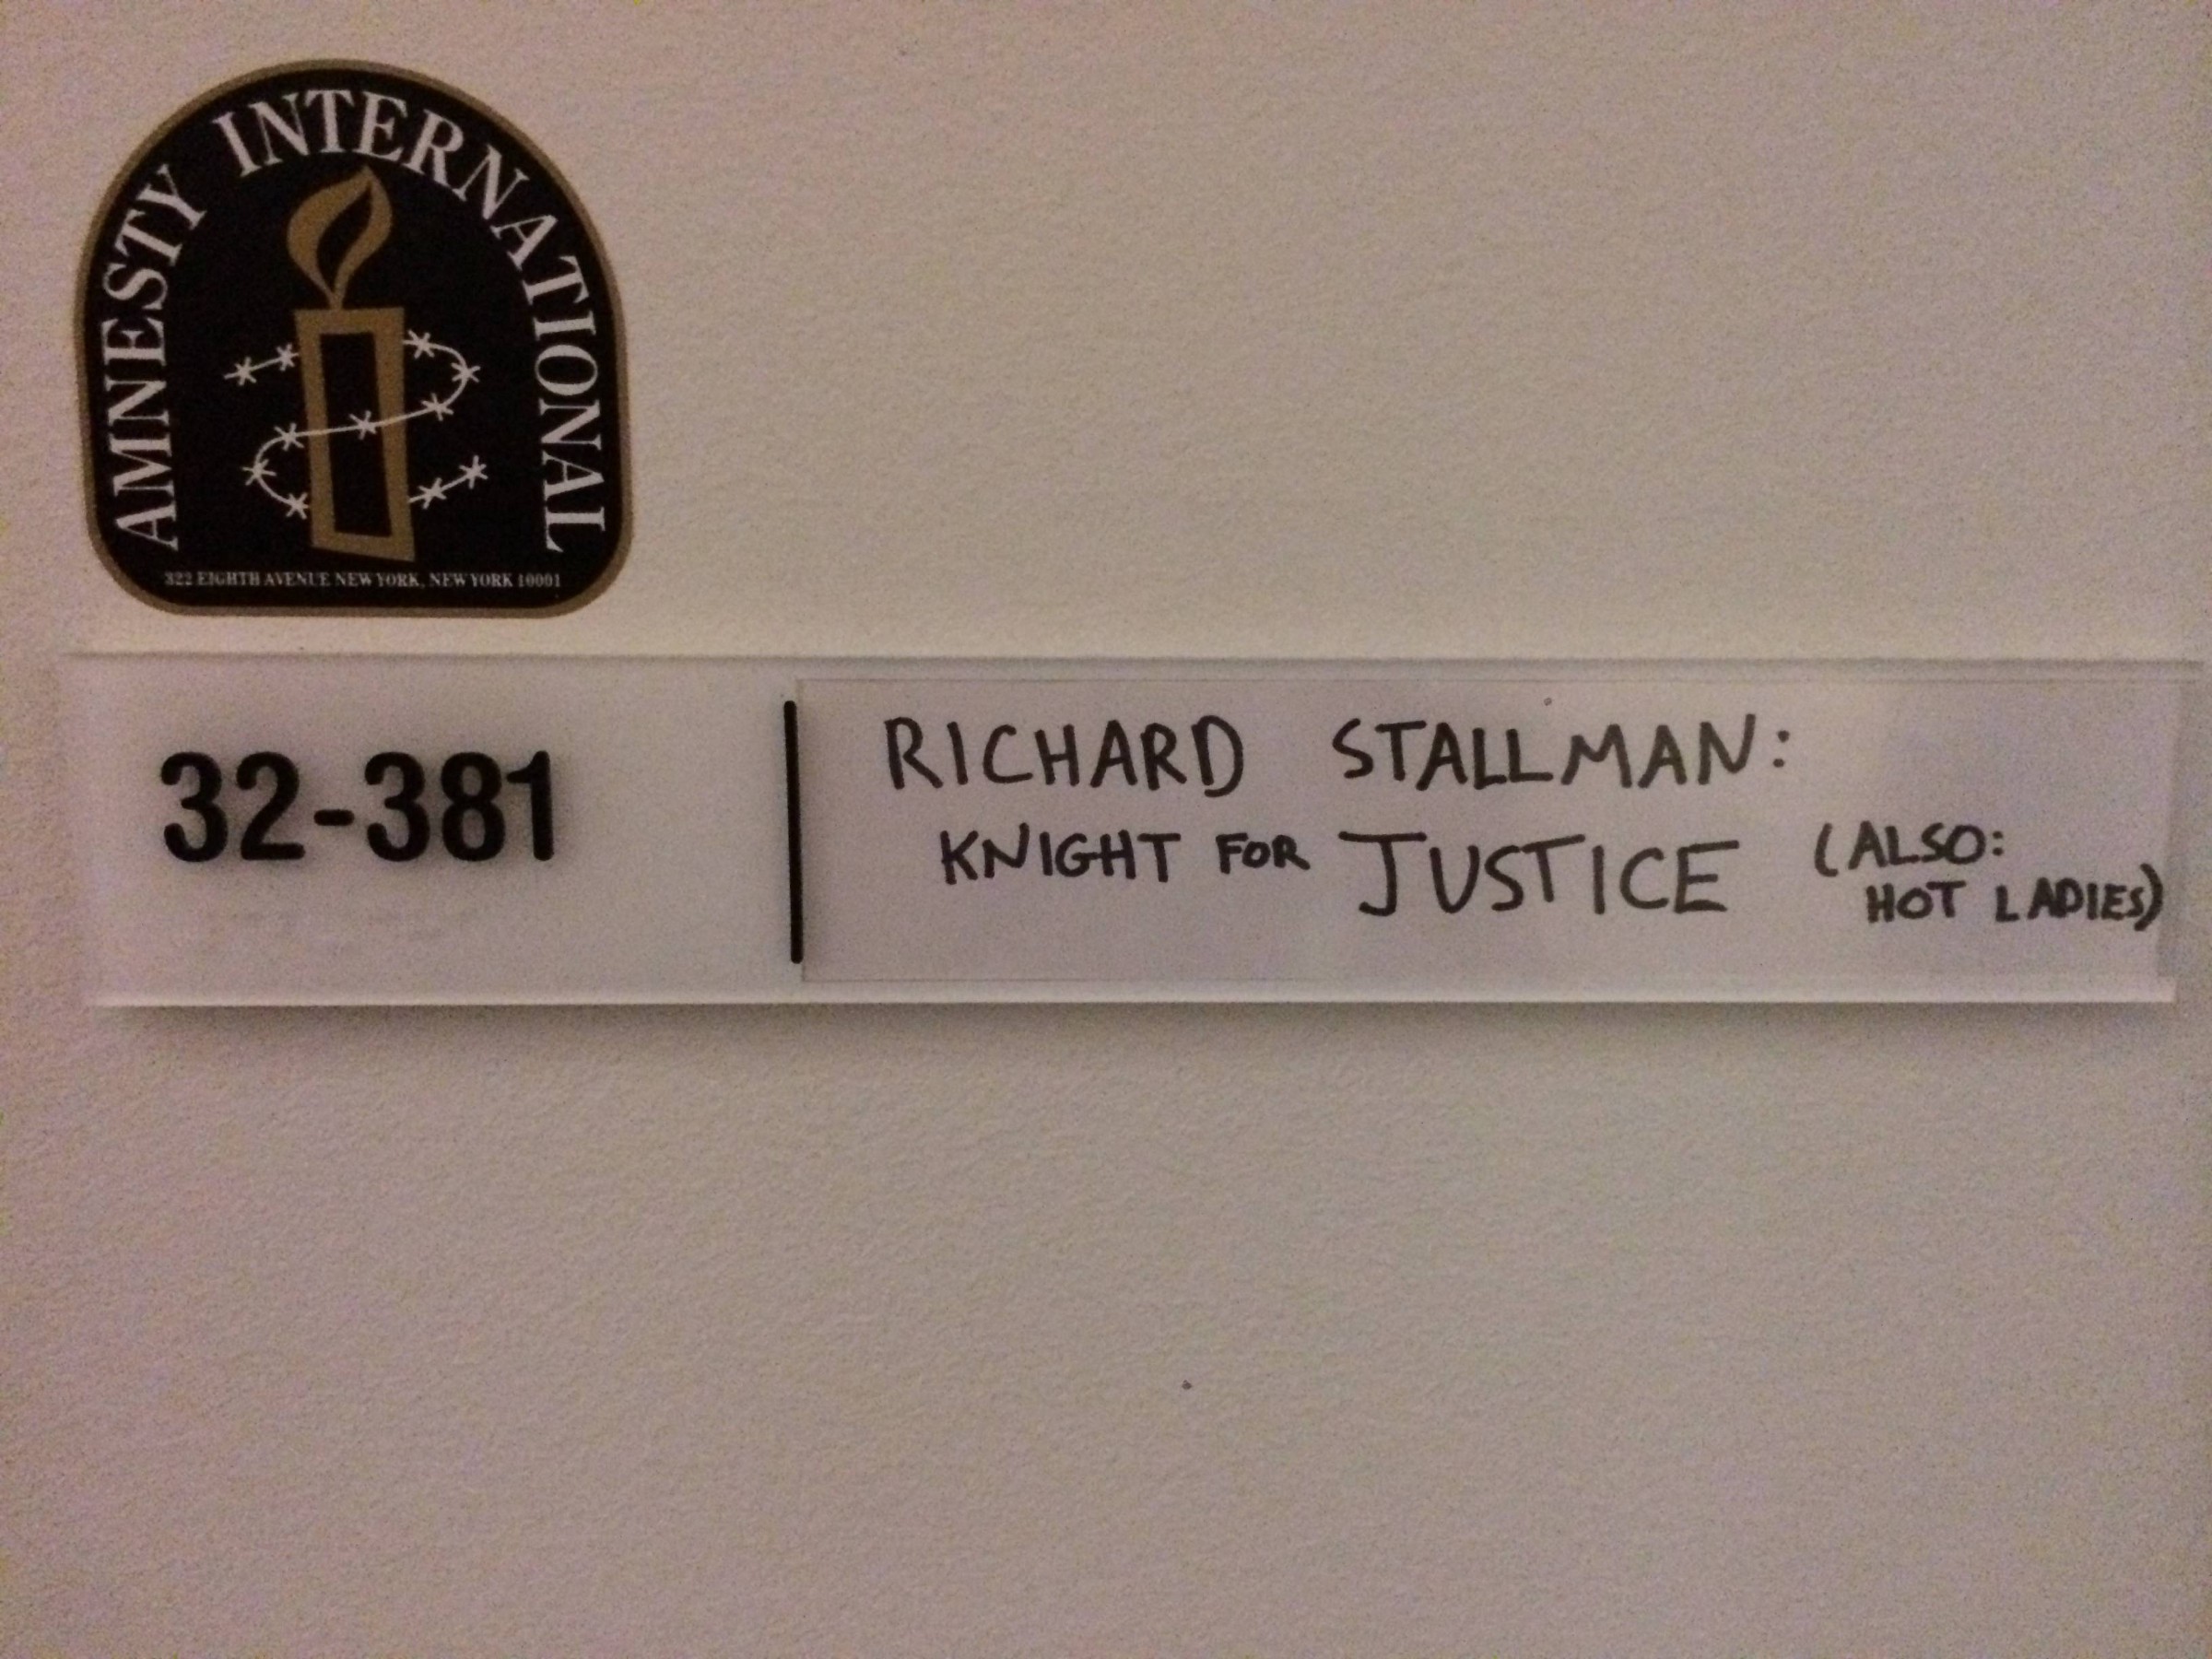 AMNESTY INTERNATIONAL
322 EIGHTH AVENUE NEW YORK, NEW YORK 10001
32-381
RICHARD STALLMAN:
KNIGHT FOR JUSTICE (ALSO:
HOT LADIES)